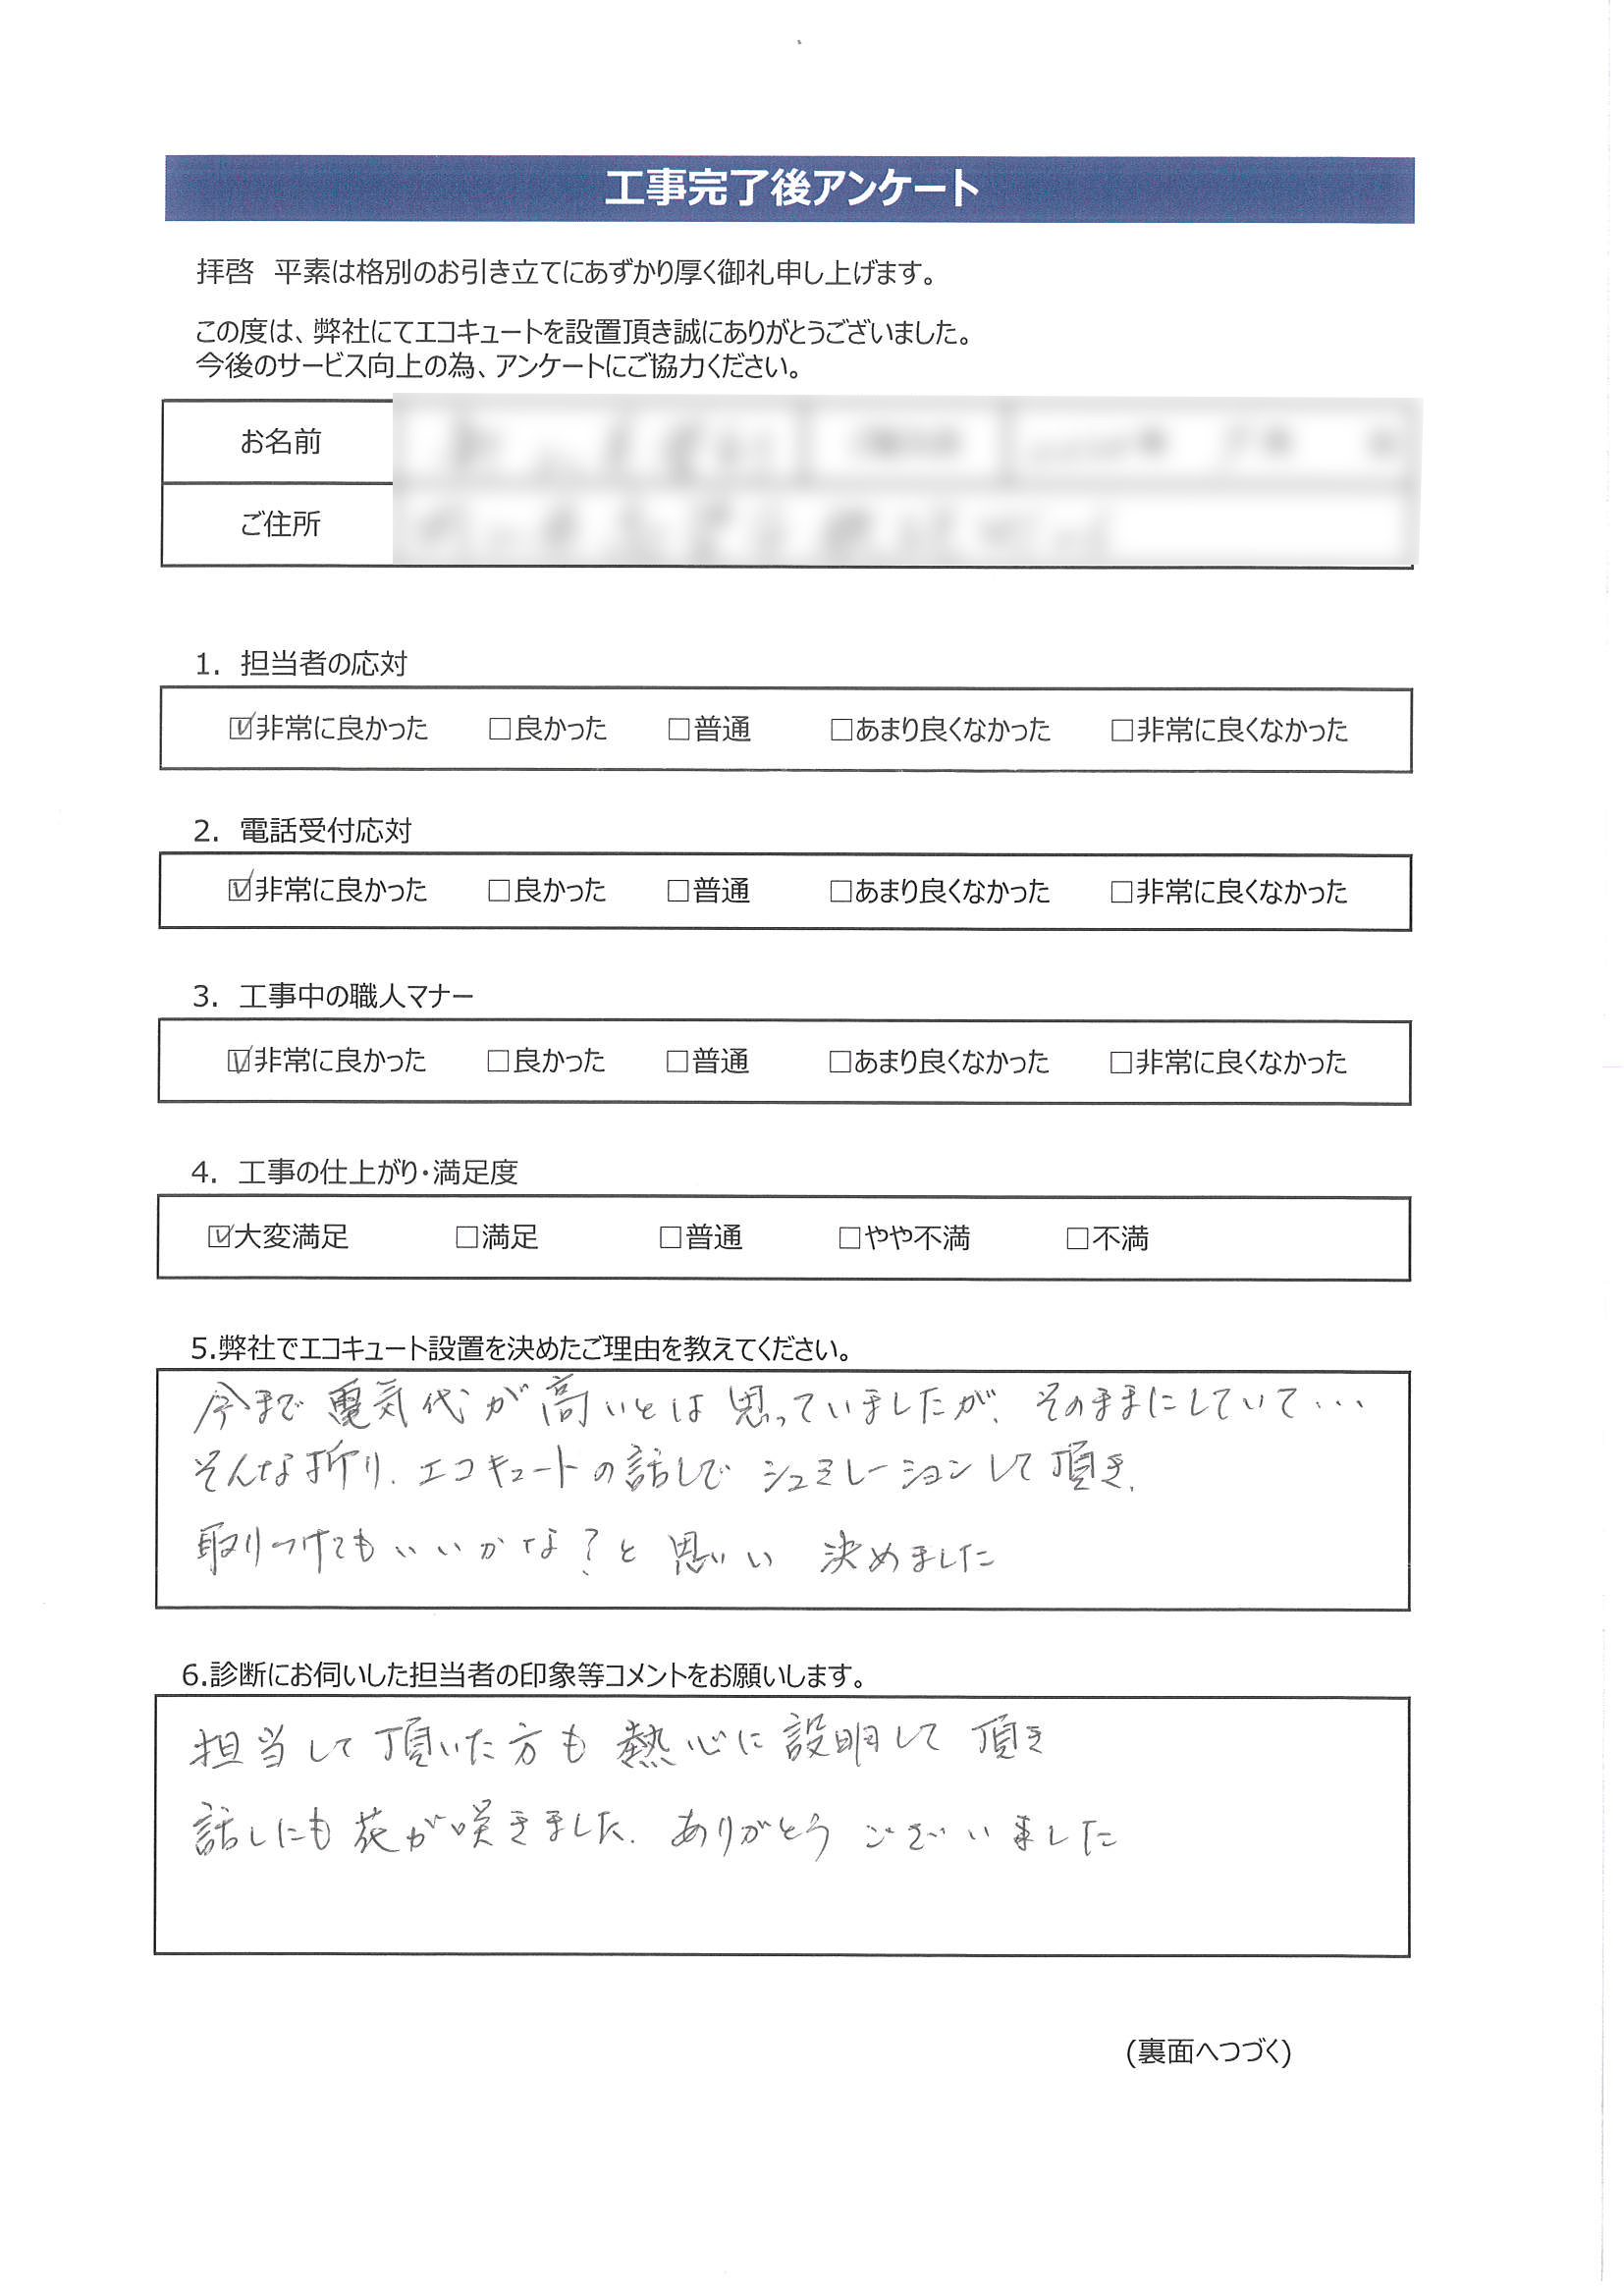 工事完了後アンケート
拝啓　平素は格別のお引き立てにあずかり厚く御礼申し上げます。
この度は、弊社にてエコキュートを設置頂き誠にありがとうございました。
今後のサービス向上の為、アンケートにご協力ください。
お名前
ご住所
1. 担当者の応対
☑非常に良かった　□良かった　□普通　□あまり良くなかった　□非常に良くなかった
2. 電話受付応対
☑非常に良かった　□良かった　□普通　□あまり良くなかった　□非常に良くなかった
3. 工事中の職人マナー
☑非常に良かった　□良かった　□普通　□あまり良くなかった　□非常に良くなかった
4. 工事の仕上がり・満足度
☑大変満足　□満足　□普通　□やや不満　□不満
5.弊社でエコキュート設置を決めたご理由を教えてください。
今まで電気代が高いとは思っていましたが、そのままにしていて…
そんな折り、エコキュートの話しでシュミレーションして頂き、
取りつけてもいいかな？と思いい 決めました
6.診断にお伺いした担当者の印象等コメントをお願いします。
担当して頂いた方も熱心に説明して頂き
話しにも花が咲きました。ありがとうございました
(裏面へつづく)